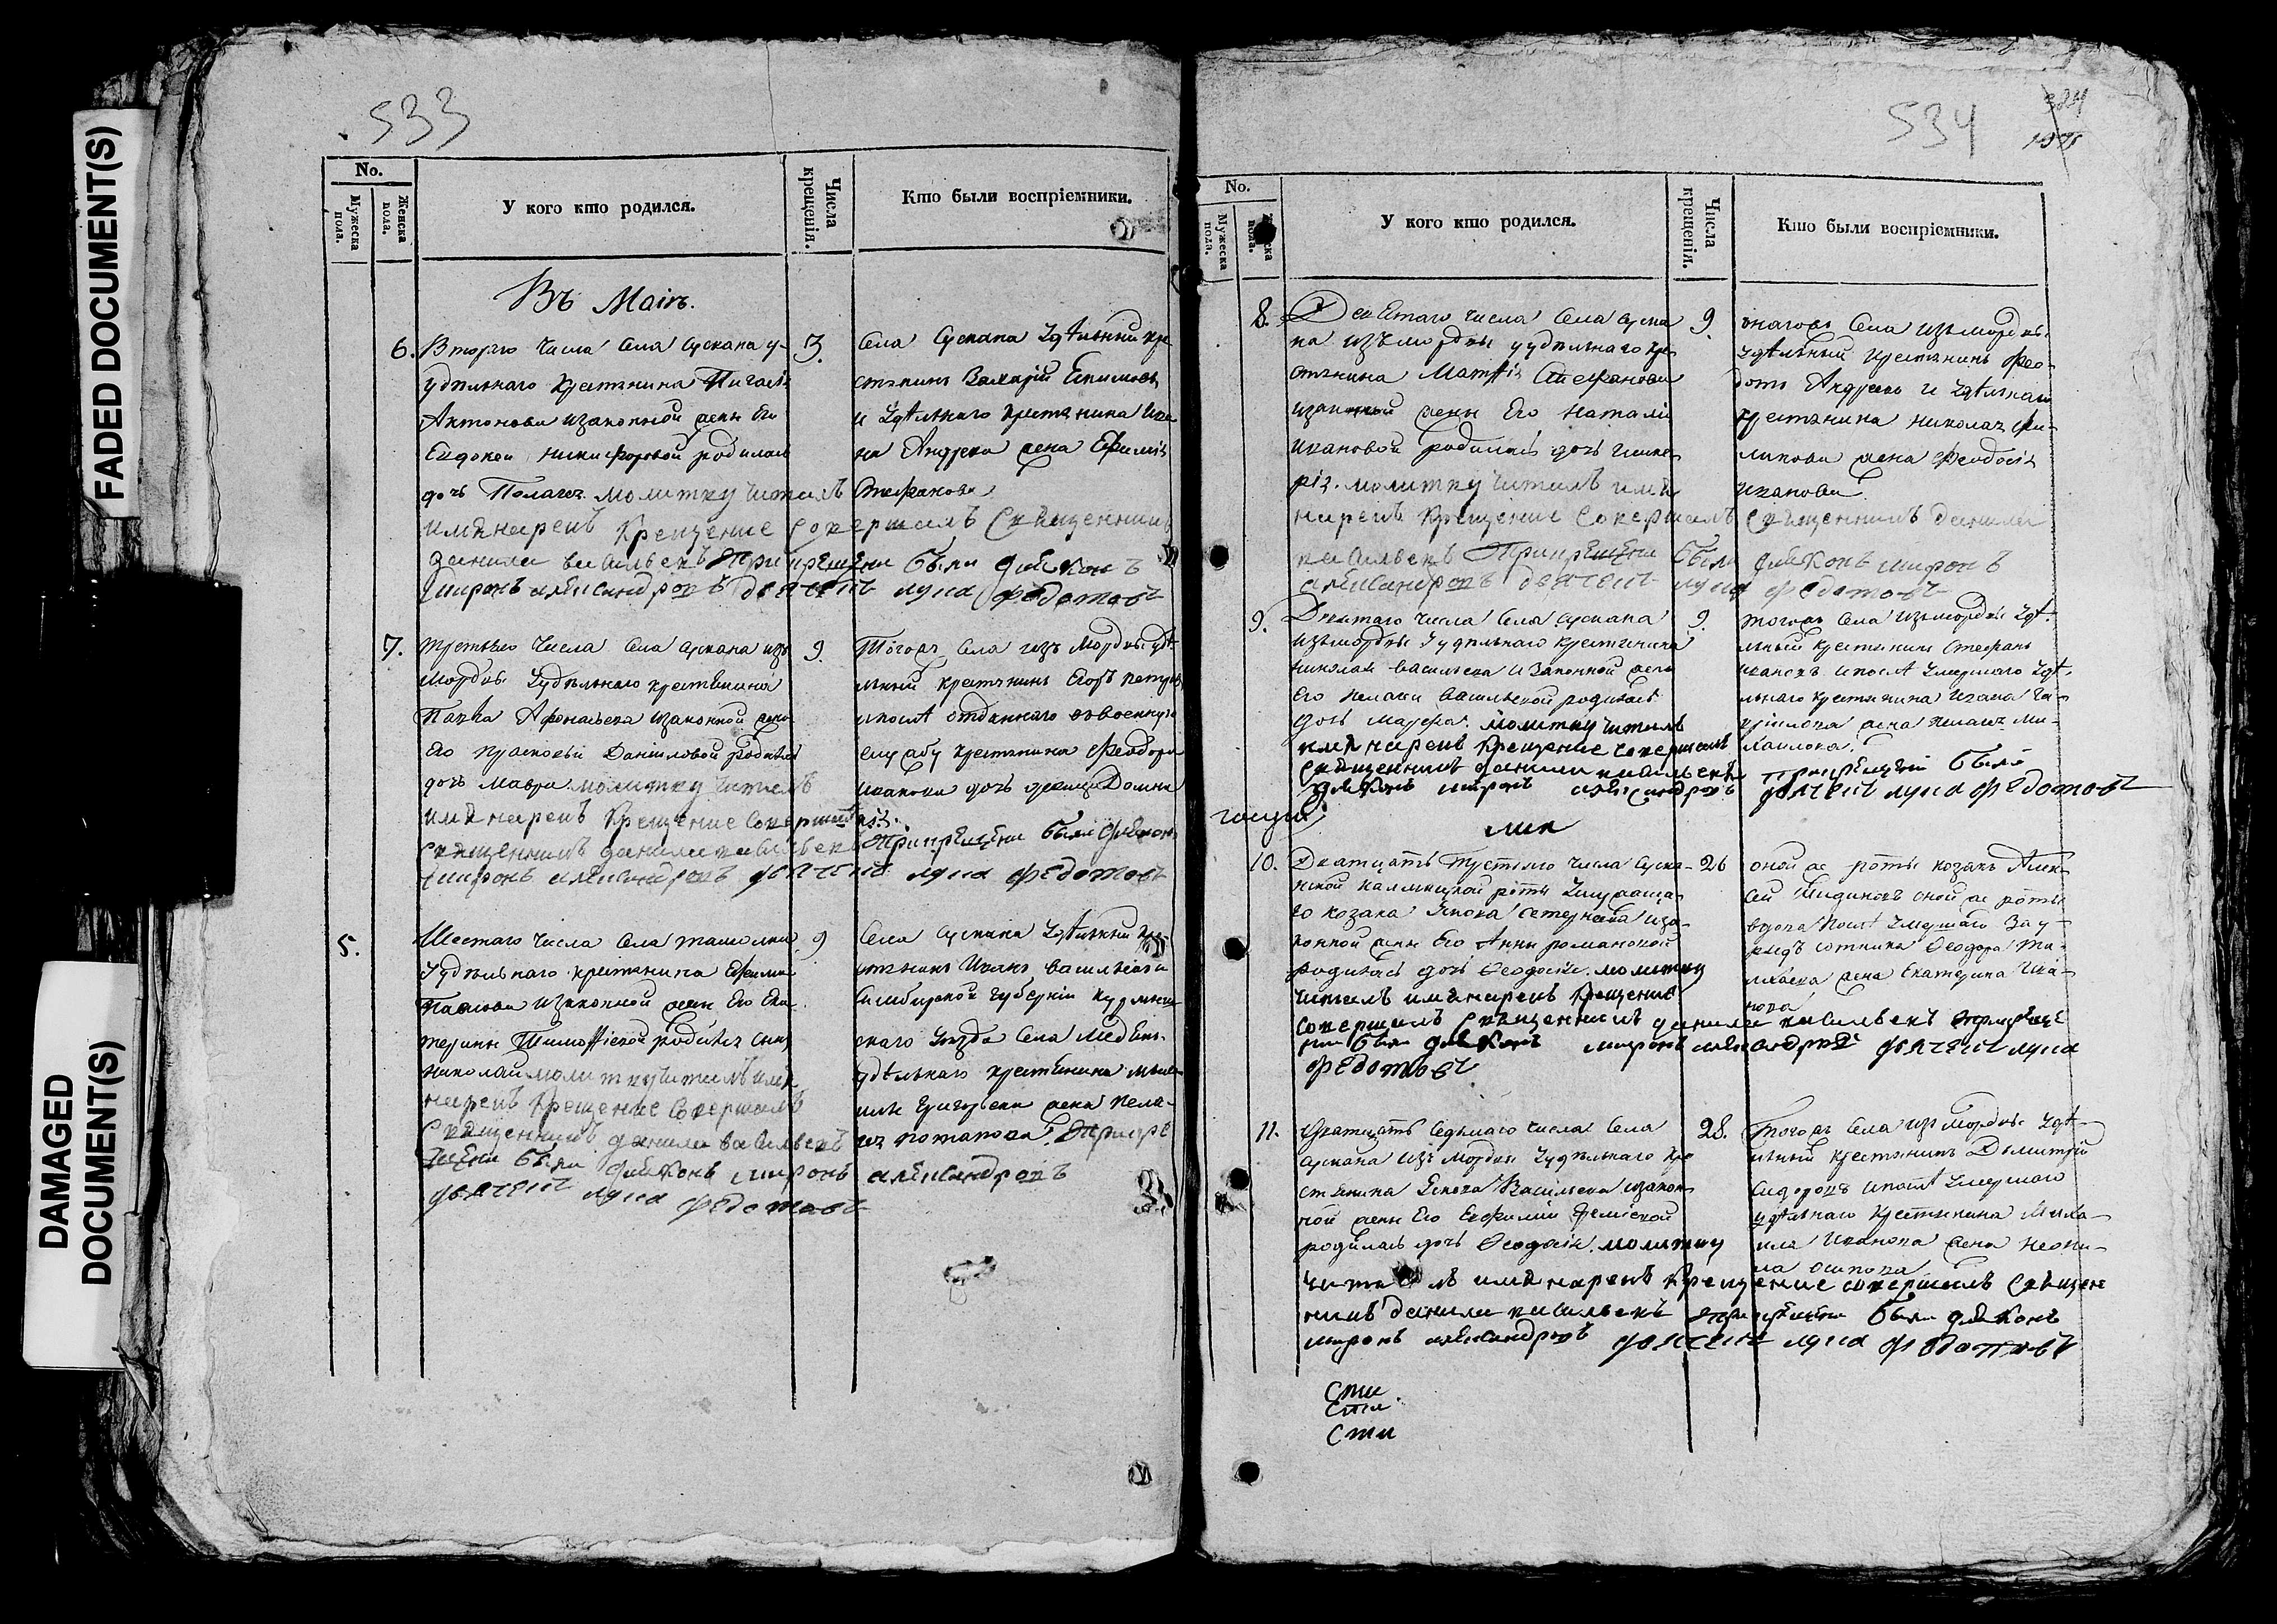 FADED DOCUMENT(S)
DAMAGED
DOCUMENT(S)
533
No.
Мужеска пола.
Женска пола.
У кого кто родился.
Числа крещенія.
Кто были воспріемники.
Въ Маіѣ.
6. Втораго числа села Сускана у-
удѣльнаго крестьянина
Антонова изаконной жены Его
Евдокеи Никифоровой родилась
дочь Полагея. молитву читалъ
имя нарекъ крещение совершалъ священникъ
данила васильевъ при крещении были диякон
миронъ александровъ дьячекъ лука федотовъ
3. Села Сускана удѣльный кре
стьянинъ Екимовъ
и удѣльнаго крестьянина Ива
на Андреева жена Ефимія
Стефанова
7. третьяго числа села Сускана изъ
мордвы удѣльнаго крестьянина
Павла Афонасьева изаконной жены
Его Прасковьи Даніиловой родилась
дочь Мавра. молитву читалъ
имя нарекъ крещение совершалъ
священникъ данила васильевъ при крещении были диякон
миронъ александровъ дьячекъ лука федотовъ
9. Тогожъ села изъ Мордвы удѣ-
льный крестьянинъ Егоръ Петровъ
и отданнаго въ военную
службу крестьянина Феодора
Иванова дочь девица Домна
5. Шестаго числа села Ташолки
удѣльнаго крестьянина Ефима
Павлова изаконной жены Его Ека-
терины Тимофѣевой родился сынъ
Николай молитву читалъ имя
нарекъ крещение совершалъ
священникъ данила васильевъ
были диякон миронъ александровъ
дьячекъ лука федотовъ
9 Села Сускана удѣльный кре-
стьянинъ Иванъ Васильевъ и
Симбирской губерніи Курмыш
скаго уѣзда села
удѣльнаго крестьянина
Григорьева жена Пела-
гея Потапова. при кре
534
384
No.
Мужеска пола.
У кого кто родился.
Числа крещенія.
Кто были воспріемники.
8. Девятаго числа села Суска
на изъ мордвы удѣльнаго кре-
стьянина Матфія Стефанова
изаконной жены Его Наталіи
Ивановой родилась дочь Глике-
рія. молитву читалъ имя
нарекъ крещение совершалъ священникъ данила
васильевъ при крещении были диякон миронъ
александровъ дьячекъ лука федотовъ
9. онагожъ села изъ мордвы
удѣльный крестьянинъ Фео-
дотъ Андреевъ и удѣльнаго
крестьянина Николая Фи-
липова жена Феодосія
Иванова.
9. Девятаго числа села Сускана
изъ мордвы удѣльнаго крестьянина
Николая Васильева и законной жены
Его Пелагеи Васильевой родилась
дочь Марфа. молитву читалъ
имя нарекъ крещение совершалъ
священникъ данила васильевъ
диякон миронъ александровъ
9. тогожъ села изъ мордвы удѣ-
льный крестьянинъ Стефанъ
Ивановъ и послѣ умершаго удѣ-
льнаго крестьянина Ивана Га-
врилова жена Пелагея Ми-
хаилова.
при крещении были
дьячекъ лука федотовъ
10. Двадцать третьяго числа Суска-
нской калмыцкой роты
го козака Якова иза-
конной жены Его Анны Романовой
родилась дочь Феодосія. молитву
читалъ имя нарекъ крещение
совершалъ священникъ данила васильевъ
были диякон миронъ александровъ дьячекъ лука
федотовъ
26 оной же роты козакъ Алек-
сей оной же роты
вдова послѣ умершаго Зау-
рядъ сотника Феодора Ти-
жена Екатерина Ива-
нова
11. Двадцать седьмаго числа села
Сускана изъ мордвы удѣльнаго кре
стьянина Якова Васильева изакон-
ной жены Его Евфиміи
родилась дочь Феодосія. молитву
читалъ имя нарекъ крещение совершалъ священ
никъ данила васильевъ при крещении были диякон
миронъ александровъ дьячекъ лука федотовъ
28. Тогожъ села изъ мордвы удѣ-
льный крестьянинъ Димитрій
Сидоровъ и послѣ умершаго
удѣльнаго крестьянина Миха-
ила Иванова жена Неони-
ла Осипова
Сти
Сти
Сти